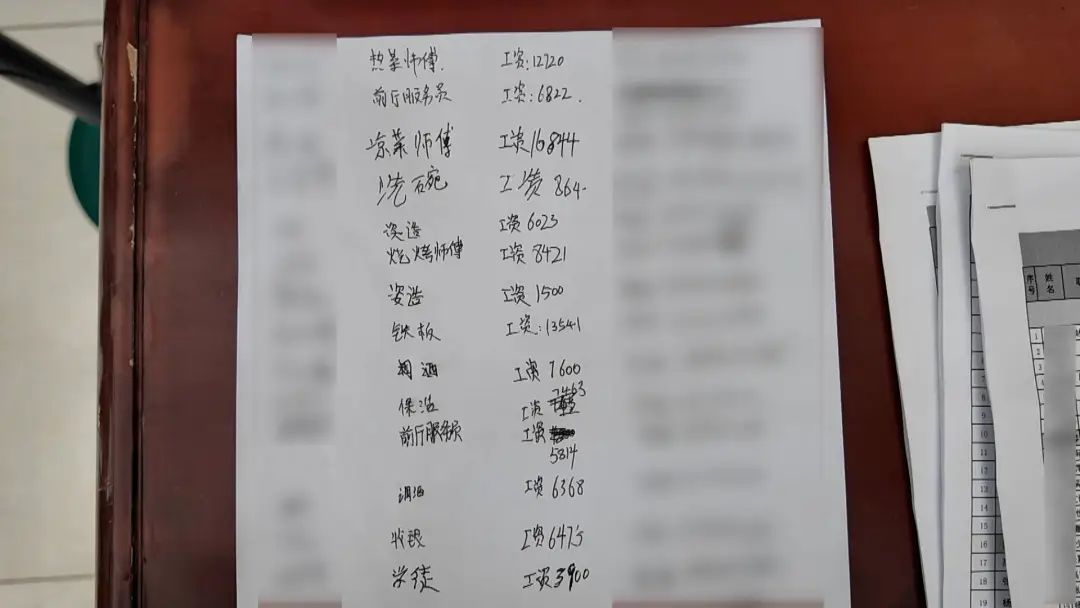 热菜师傅 工资:12720
前厅服务员 工资:6822.
凉菜师傅 工资16844
洗碗 工资864
工资6023
烧烤师傅 工资8421
工资1500
铁板 工资:13541
工资7600
保洁 工资7463
前厅服务员 工资5814
调酒 工资6368
收银 工资6475
学徒 工资3900
序号 姓名
1
2
3
4
7
8
9
10
11
12
13
14
15
16
17
18
19